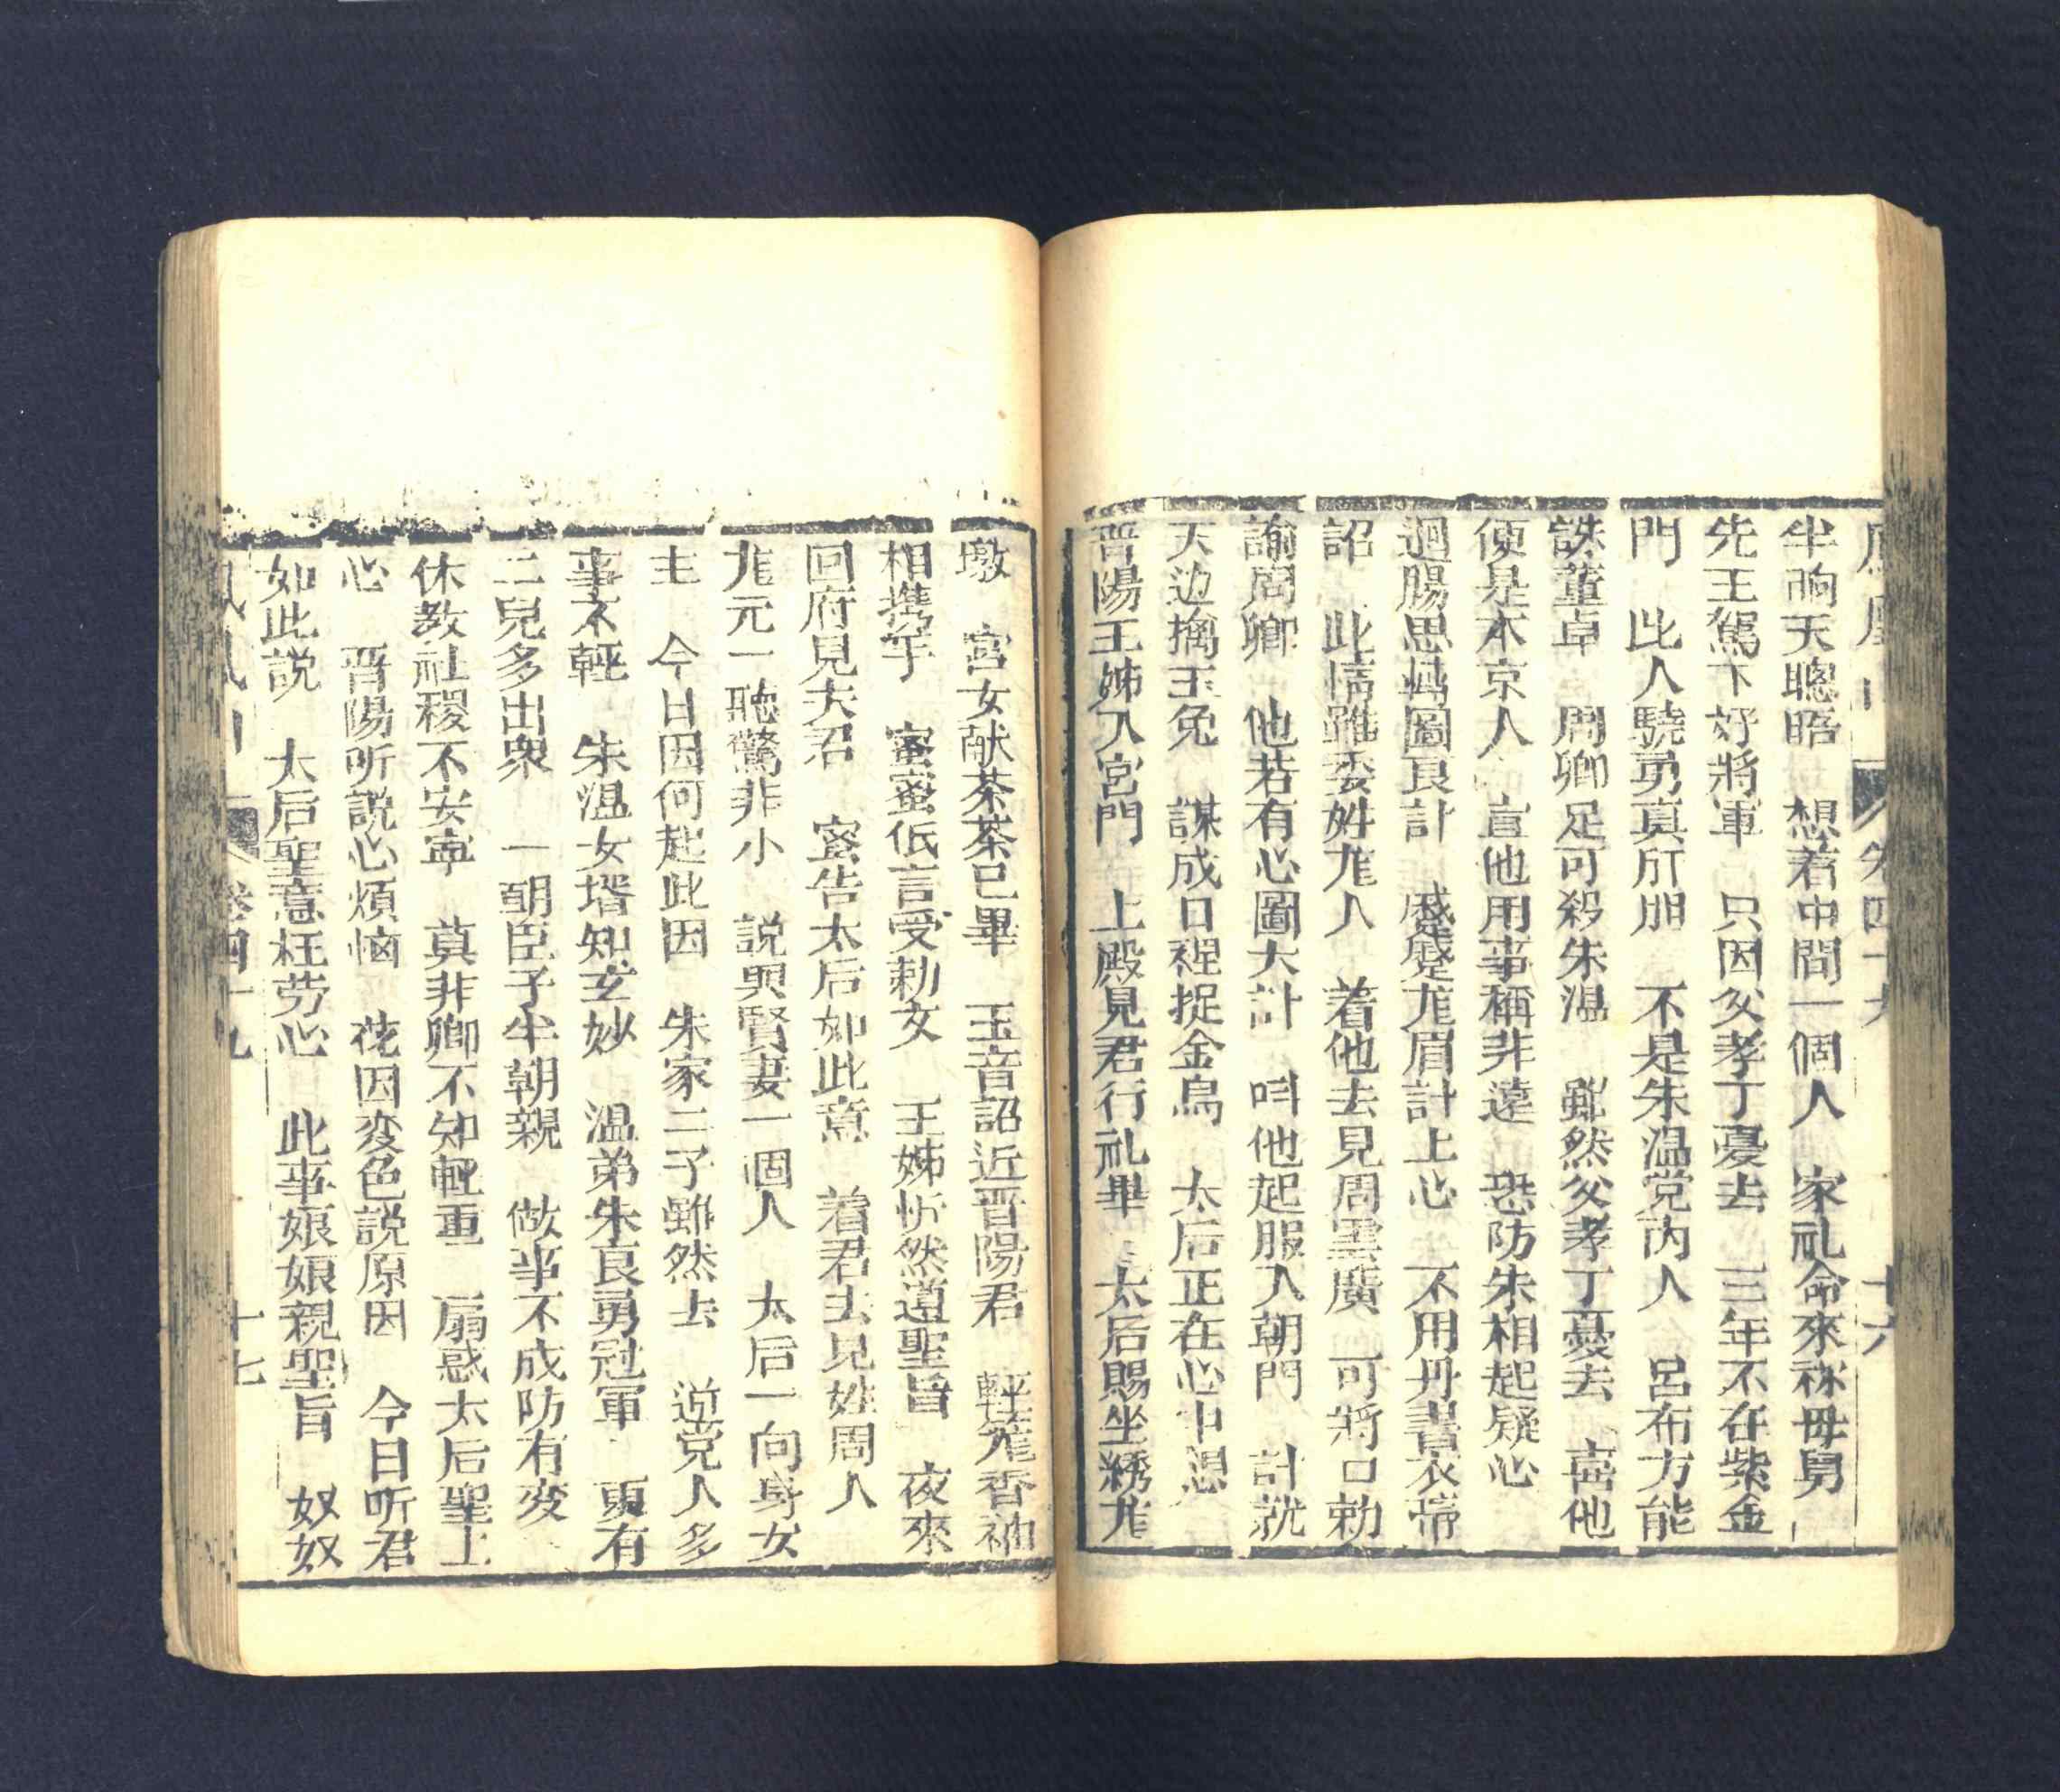 半晌天聰晤　想着中間一個人　家礼命來袮母舅
先王駕下好將軍　只因父孝丁憂去　三年不在紫金
門　此人驍勇真所朋　不是朱温党内人　呂布方能
誅董卓　周卿足可殺朱温　雖然父孝丁憂去　喜他
便是本京人　宣他用事稱非遠　恐防朱相起疑心
迴腸思想圖良計　蹙蹙尨眉計上心　不用丹書衣帶
詔　此情雖委姓尨人　着他去見周雲廣　可將口勅
諭周卿　他若有心圖大計　叫他起服入朝門　計就
天边擒玉兔　謀成日裡捉金烏　太后正在心中想
晋陽王姊入宮門　上殿見君行礼畢　太后賜坐綉尨
墩　宮女献茶茶已畢　玉音詔近晋陽君　輕籠香袖
相携手　蜜蜜低言受勅女　王姊忻然遵聖旨　夜來
回府見夫君　蜜告太后如此意　着君去見姓周人
尨元一聽驚非小　説與賢妻一個人　太后一向身女
主　今日因何起此因　朱家二子雖然去　逆党人多
事不輕　朱温女壻知玄妙　温弟朱良勇冠軍　更有
二兒多出衆　一朝臣子半朝親　做事不成防有变
休教社稷不安寧　莫非卿不知輕重　扇惑太后聖上
心　晋陽听説心煩惱　花因変色説原因　今日听君
如此説　太后聖意枉劳心　此事娘娘親聖旨　奴奴
卷四十九
十七